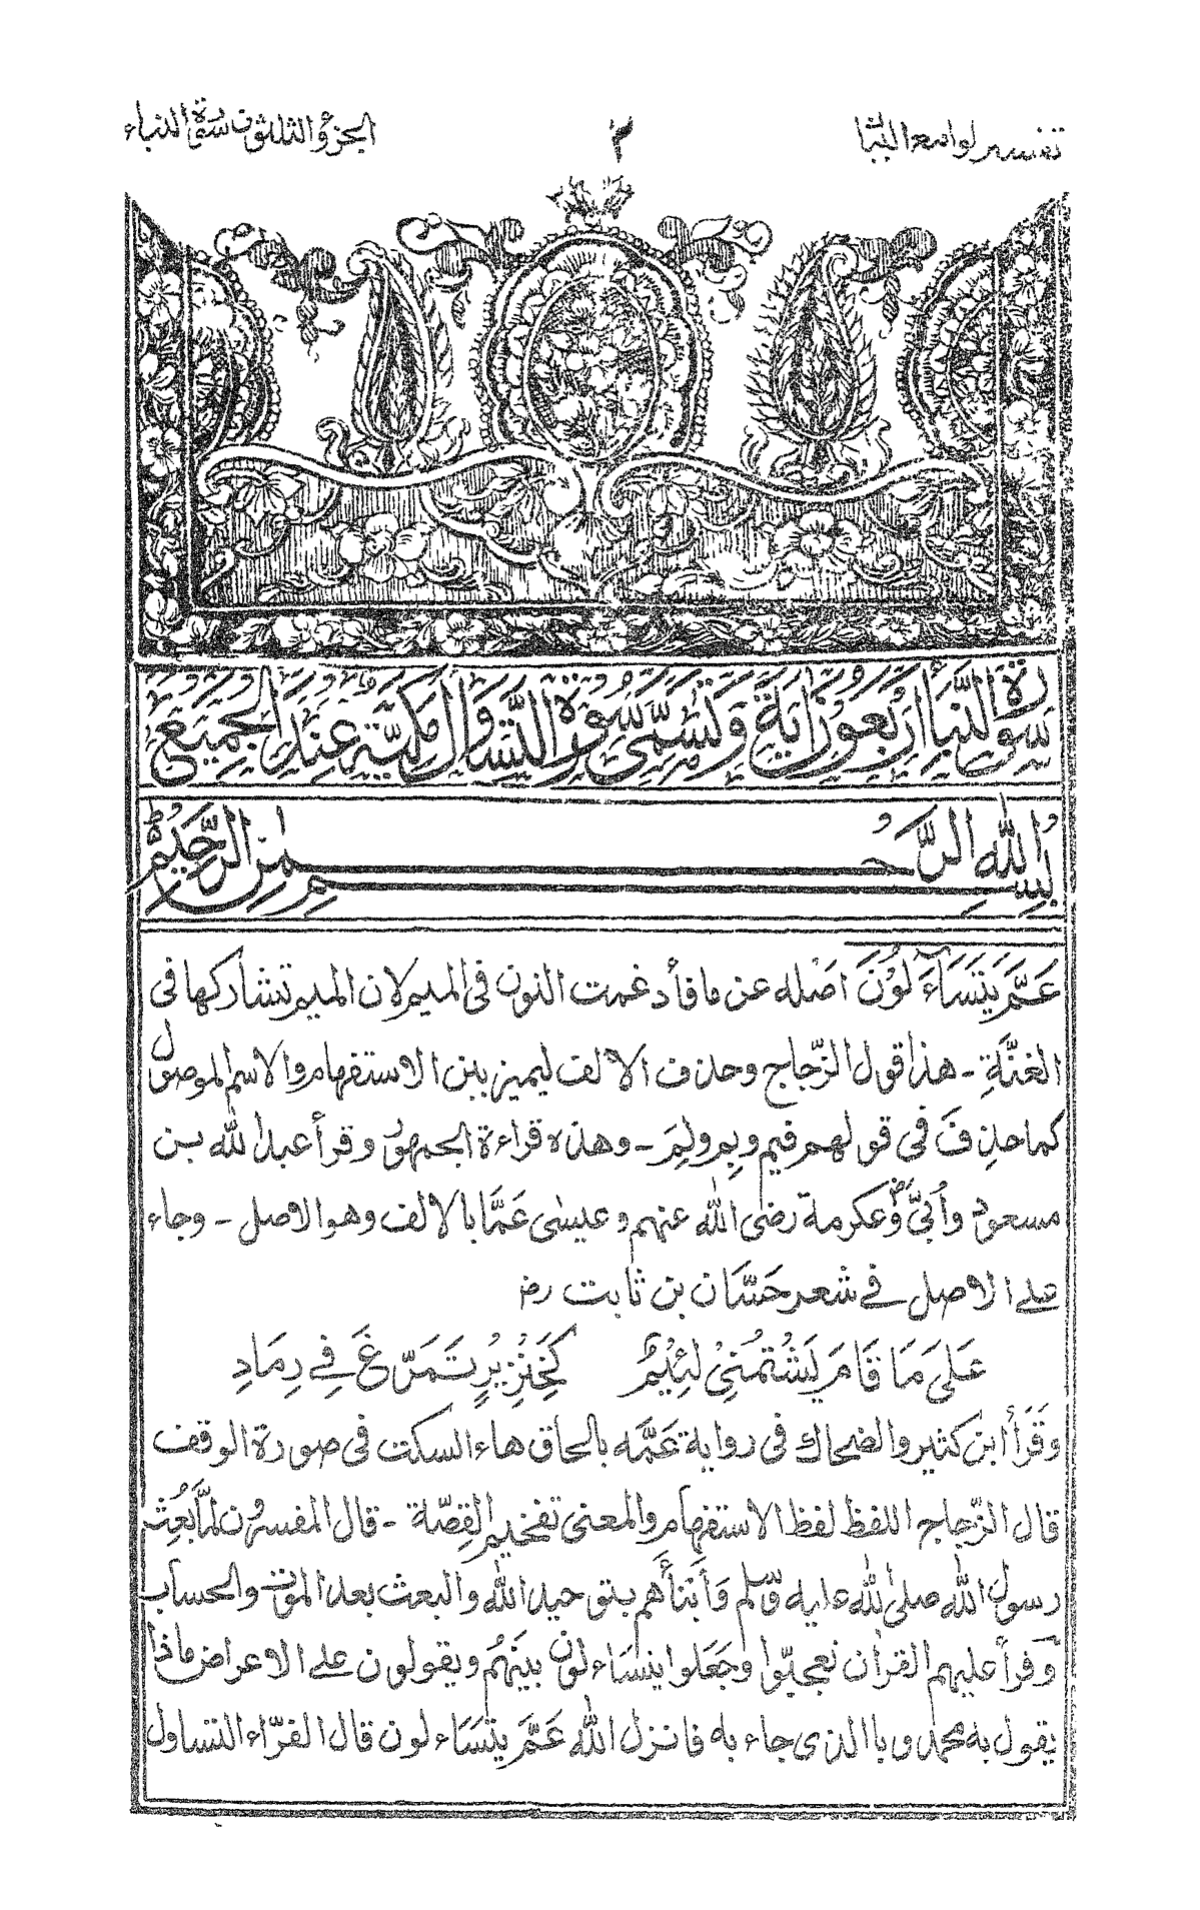 تفسير لوامع البينات
٢
الجزؤ الثلثون سورة النباء
سورة النبأ اربعون اية وتسمى سورة التساول مكية عند الجميع
بسم الله الرحمن الرحيم
عَمَّ يَتَسَآءَلُوْنَ اَصْله عن ما فأدغمت النون فى الميم لان الميم تشاركها فى
الغنَّةِ - هذا قول الزّجاج وحذف الالف ليميز بين الاستفهام والاسم الموصول
كما حذِفَ فى قولهم فيم وبِم ولِمَ - وهذه قراءة الجمهور وقرأ عبد الله بن
مسعود وأُبىّ وعكرمة رضى الله عنهم وعيسٰى عَمَّا بالالف وهو الاصل - وجاء
على الاصل فے شعر حَسَّان بن ثابت رض
عَلىَ مَا قَامَ يَشْتُمُنِىْ لَئِيْمٌ كَخِنْزِيْرٍ تَمَرَّغَ فِے رِمَادِ
وَقَرَأ ابن كثير والضحاك فى رواية عَمَّه بالحاق هاء السكت فى صورة الوقف
قال الزّجاج اللفظ لفظ الاستفهام والمعنى تفخيم القِصّة - قال المفسرون لمَّا بُعِث
رسول الله صلى الله عليه وسلم وَأَنبَأَهم بتوحيد الله والبعث بعد الموت والحساب
وقرأ عليهم القرآن تعجبّوا وجَعَلوا يتسَاءلون بينَهُم ويقولون على الاعراض ماذا
يقول به محمد وبا الذى جاء به فانزل الله عَمَّ يتَسَاءلون قال الفرّاء التساول